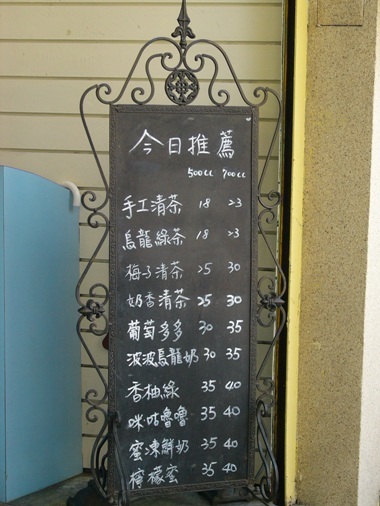 今日推薦
500cc 700cc
手工清茶 18 23
烏龍綠茶 18 23
梅子清茶 25 30
奶香清茶 25 30
葡萄多多 30 35
波波烏龍奶 30 35
香柚綠 35 40
咪咕嚕嚕 35 40
蜜凍鮮奶 35 40
檸檬蜜 35 40